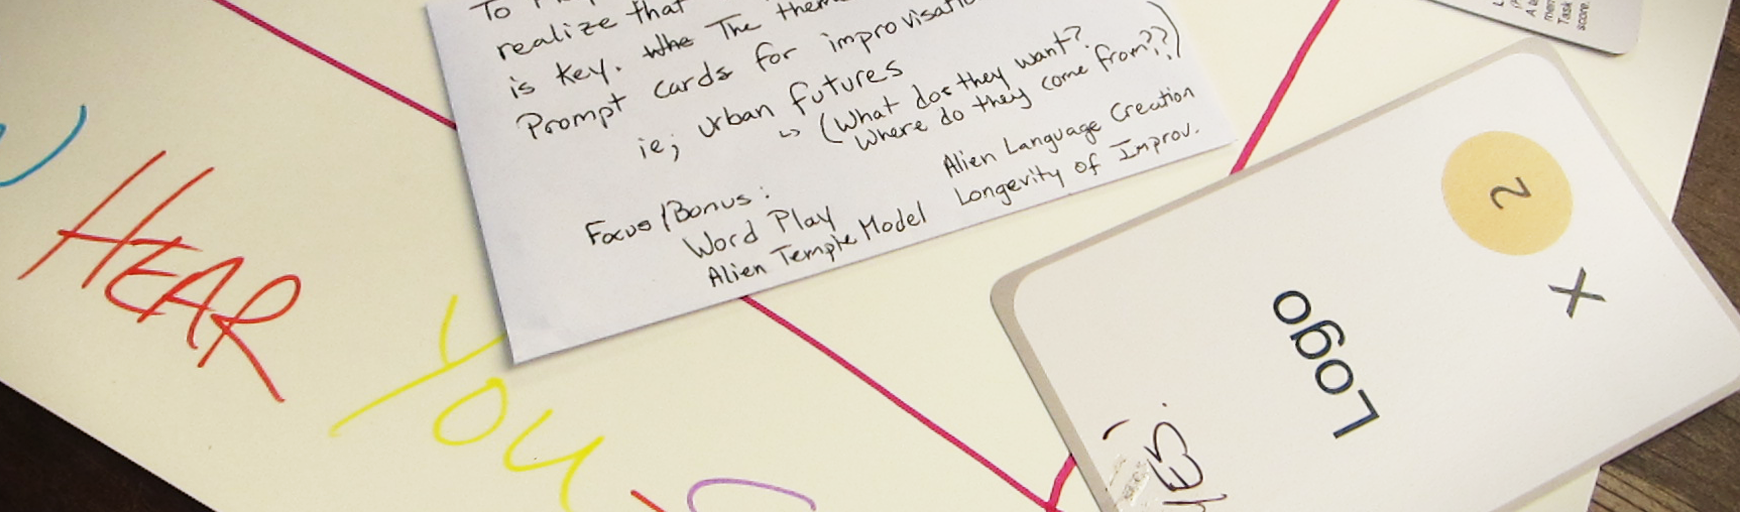 To
realize that
is key. The
Prompt cards for improvisatio
ie; urban futures
↳ (What do they want?
Where do they come from??)
Focus/Bonus:
Word Play
Alien Temple Model
Alien Language Creation
Longevity of Improv.
HEAR
YOU
2
X
Logo
Task
score.